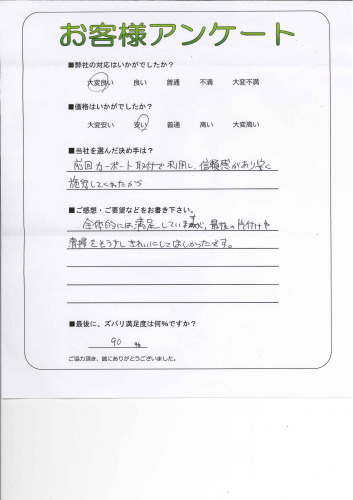 お客様アンケート
■弊社の対応はいかがでしたか？
大変良い 良い 普通 不満 大変不満
■価格はいかがでしたか？
大変安い 安い 普通 高い 大変高い
■当社を選んだ決め手は？
前回カーポート取付で利用し、信頼感があり安く
施工してくれたから
■ご感想・ご要望などをお書き下さい。
全体的には満足していますが、最後の片付けや
清掃をもう少しきれいにしてほしかったです。
■最後に、ズバリ満足度は何%ですか？
90 %
ご協力頂き、誠にありがとうございました。